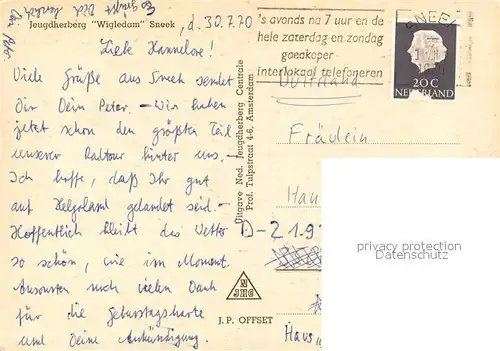 Jeugdherberg "Wigledam" Sneek
, d. 30.7.70
Liebe Hannelore!
Viele Grüße aus Sneek sendet
Dir Dein Peter. – Wir haben
jetzt schon den größten Teil
unserer Radtour hinter uns. –
Ich hoffe, daß Ihr gut
auf Helgoland gelandet seid. –
Hoffentlich bleibt das Wetter
so schön, wie im Moment.
Ansonsten noch vielen Dank
für die Geburtstagskarte
und Deine Ankündigung.
Uitgave Ned. Jeugdherberg Centrale
Prof. Tulpstraat 4-6, Amsterdam
N
JHC
J. P. OFFSET
's avonds na 7 uur en de
hele zaterdag en zondag
goedkoper
interlokaal telefoneren
SNEEK
20 C
NEDERLAND
Fräulein
Han
D-2 1.9
Haus
privacy protection
VERIMAGE